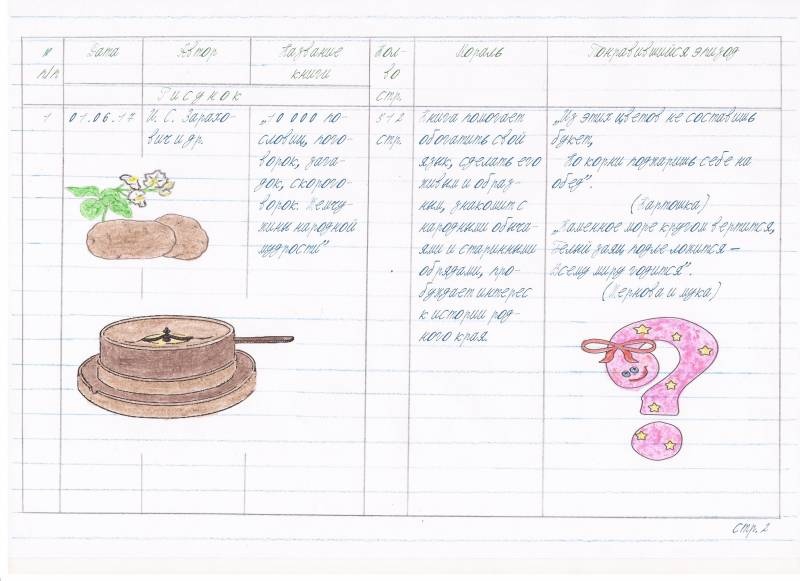 № п/п
Дата
Автор
Название
книги
Кол-
во
стр.
Мораль
Понравившийся эпизод
Рисунок
1
01.06.17
И. С. Зарахо-
вич и др.
„10 000 по-
словиц, пого-
ворок, зага-
док, скорого-
ворок. Жемчу-
жины народной
мудрости"
512
стр.
Книга помогает
обогатить свой
язык, сделать его
живым и образ-
ным, знакомит с
народными обыча-
ями и старинными
обрядами, про-
буждает интерес
к истории род-
ного края.
„Из этих цветов не составишь
букет,
Но корни поджаришь себе на
обед".
(Картошка)
„Каменное море кругом вертится,
Белый заяц подле ложится –
Всему миру годится".
(Жернова и мука)
стр. 2